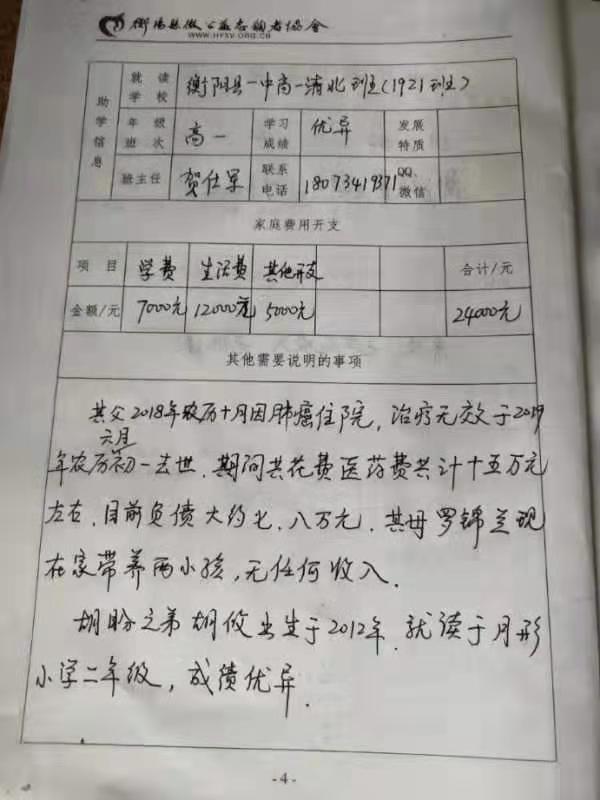 衡阳县微公益志愿者协会
WWW.HYXV.ORG.CN
助学信息
就读学校 衡阳县一中高一清北班(1921班)
年级班次 高一 学习成绩 优异 发展特质
班主任 贺仕军 联系电话 18073419371 QQ、微信
家庭费用开支
项目 学费 生活费 其他开支 合计/元
金额/元 7000元 12000元 5000元 24000元
其他需要说明的事项
其父2018年农历十月因肺癌住院,治疗无效于2019
年农历六月初一去世.期间共花费医药费共计十五万元
左右.目前负债大约七、八万元.其母罗锦兰现
在家带养两小孩,无任何收入.
胡盼之弟胡俊出生于2012年.就读于月形
小学二年级,成绩优异.
- 4 -